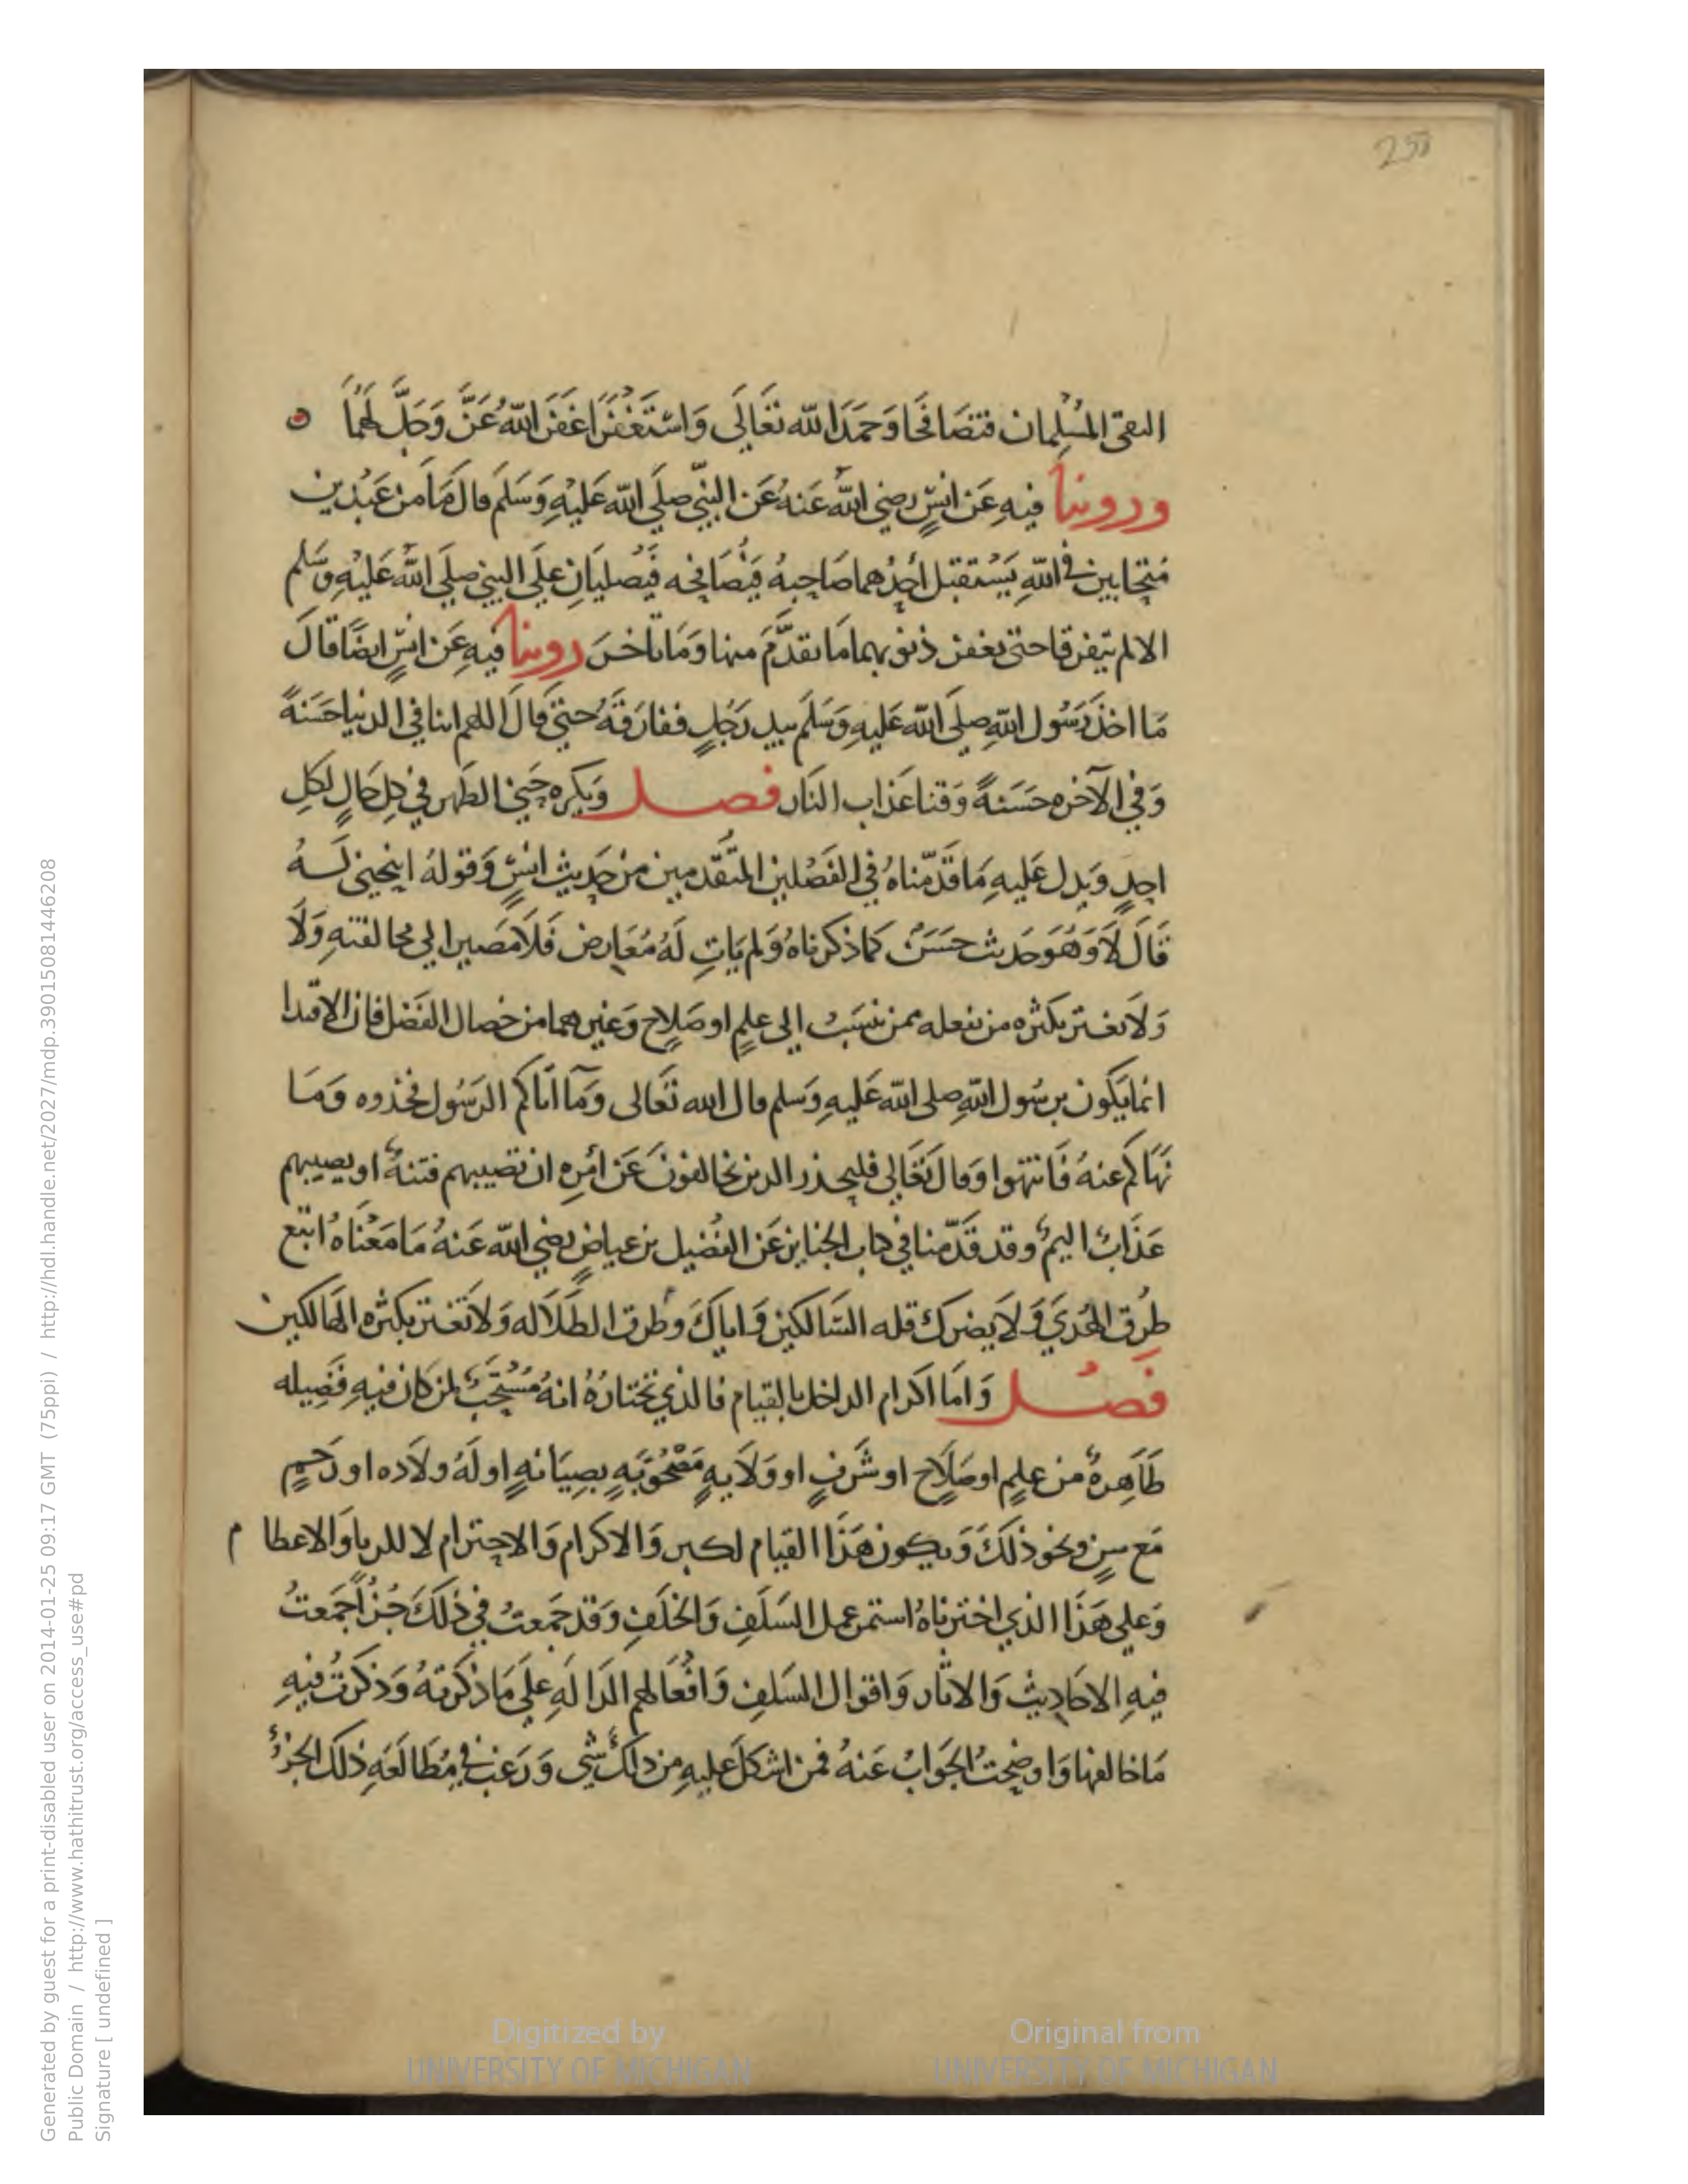 258
التقى المُسْلِمان فتصَافحَا وَحَمَدَا لله تعَالَى وَاسْتَغْفَرَا غَفَرَ اللهُ عَزَّ وَجَلَّ لهُمَا
وروينا فيهِ عَن انسٍ رضي الله عَنهُ عَن النبيّ صلَى الله عَليْهِ وَسَلمَ قال مَا من عَبْدين
مُتحابين في اللهِ يَسْتقبل أحدُهما صَاحِبهُ فيُصَافحه فيُصليَانِ علَى النبيّ صلَى الله عَليْهِ وسَلم
الا لم يتفرقا حتى تغفر ذنوبهما مَا تقدَّمَ منها وَمَا تاخرَ روينا فيهِ عَن انسٍ ايضًا قالَ
مَا اخذ رَسُول اللهِ صلَى الله عَليهِ وَسَلمَ بيد رَجُلٍ ففارَقهُ حتى قالَ اللهم اتنا في الدنيا حَسَنةً
وَفي الآخره حَسَنةً وَقنا عَذاب النَار فصل وَيكره حَني الظهر في كلِ حَالٍ لكلِ
احدٍ وَيدل عَليهِ مَا قدّمناهُ في الفَصْلين المتقدمين من حَديث انسٍ وَقولهُ اينحني لهُ
قَالَ لاَ وَهُوَ حَديث حسَنٌ كما ذكرناهُ وَلم يَاتِ لَهُ مُعَارض فَلاَ مصَير الي مخالفتهِ وَلاَ
وَلاَ تغتر بكثره من يفعله ممن ينسَبُ الى علمٍ او صَلاحٍ وَغيرهما من خصال الفَضل فان الاقتدا
انما يَكون برسُول اللهِ صلى الله عَليهِ وَسَلم قال الله تعَالى وَمَآ اتاكم الرَسُول فخذوه وَمَا
نهَاكم عنهُ فَانتهوا وَقالَ تعَالي فليحذر الدين يخالفونَ عَن امْرِه ان تصيبهم فتنةٌ او يصيبهم
عَذَابٌ اليمٌ وقد قدَّمنا في كتاب الجنايز عَن الفُضيل بن عياضٍ رضي الله عَنهُ مَا مَعْناهُ اتبع
طرُق الهُدَي وَلاَ يضرك قله السَالكين وَاياكَ وطرق الطَلاَله وَلاَ تَغتر بكثره الهَالكين
فصْل وَامَا اكرام الداخل بالقيام فالذي نختارُهُ انهُ مُسْتحَبٌ لمن كان فيهِ فضَيله
ظَاهِرةٌ من علمٍ او صَلاح او شَرفٍ او وَلاَيهٍ مَصْحُوْبَهٍ بصِيَانهٍ او لَهُ ولاَده او رَحمٍ
مَع سنٍ ونحو ذلكَ وَيكون هَذَا القيام لكبر وَالاكرام وَالاحترام لا للريا وَالاعظا م
وَعلي هَذَا الذي اخترناهُ استمر عمل السَلَفِ وَالخلَفِ وَقد جَمَعتُ في ذلكَ جُزأً جَمَعتُ
فيهِ الاحَاديث وَالاثار وَاقوال السَلفِ وَافعَالهم الدَالَهِ علَى مَا ذكرتهُ وَذكرتُ فيهِ
مَا خالفها وَاوضحتُ الجَوابُ عَنهُ فمن اشكلَ عليهِ من ذلكَ شي وَرَغب في مُطالَعَهِ ذلك الجزءُ
Digitized by
UNIVERSITY OF MICHIGAN
Original from
UNIVERSITY OF MICHIGAN
Generated by guest for a print-disabled user on 2014-01-25 09:17 GMT (75ppi) / http://hdl.handle.net/2027/mdp.39015081446208
Public Domain / http://www.hathitrust.org/access_use#pd
Signature [ undefined ]